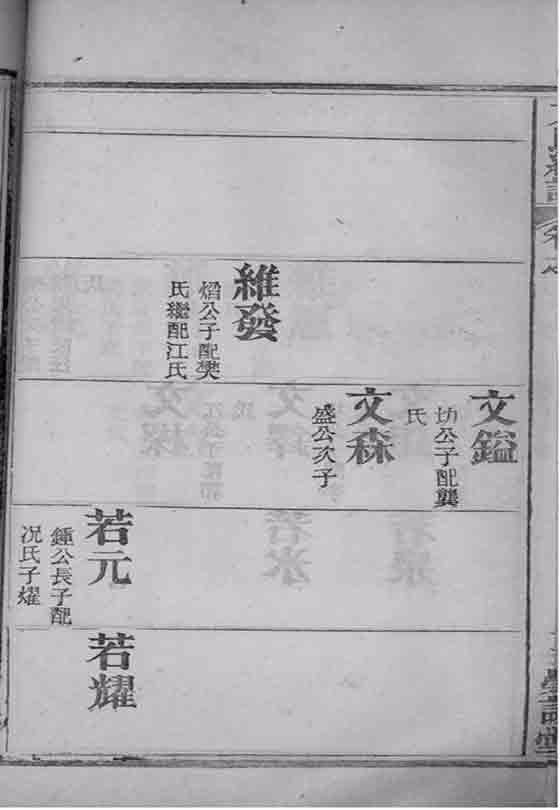 文鎰
坊公子配龔
氏
文森
盛公次子
維發
熠公子配樊
氏繼配江氏
若元
鍾公長子配
况氏子燿
若耀